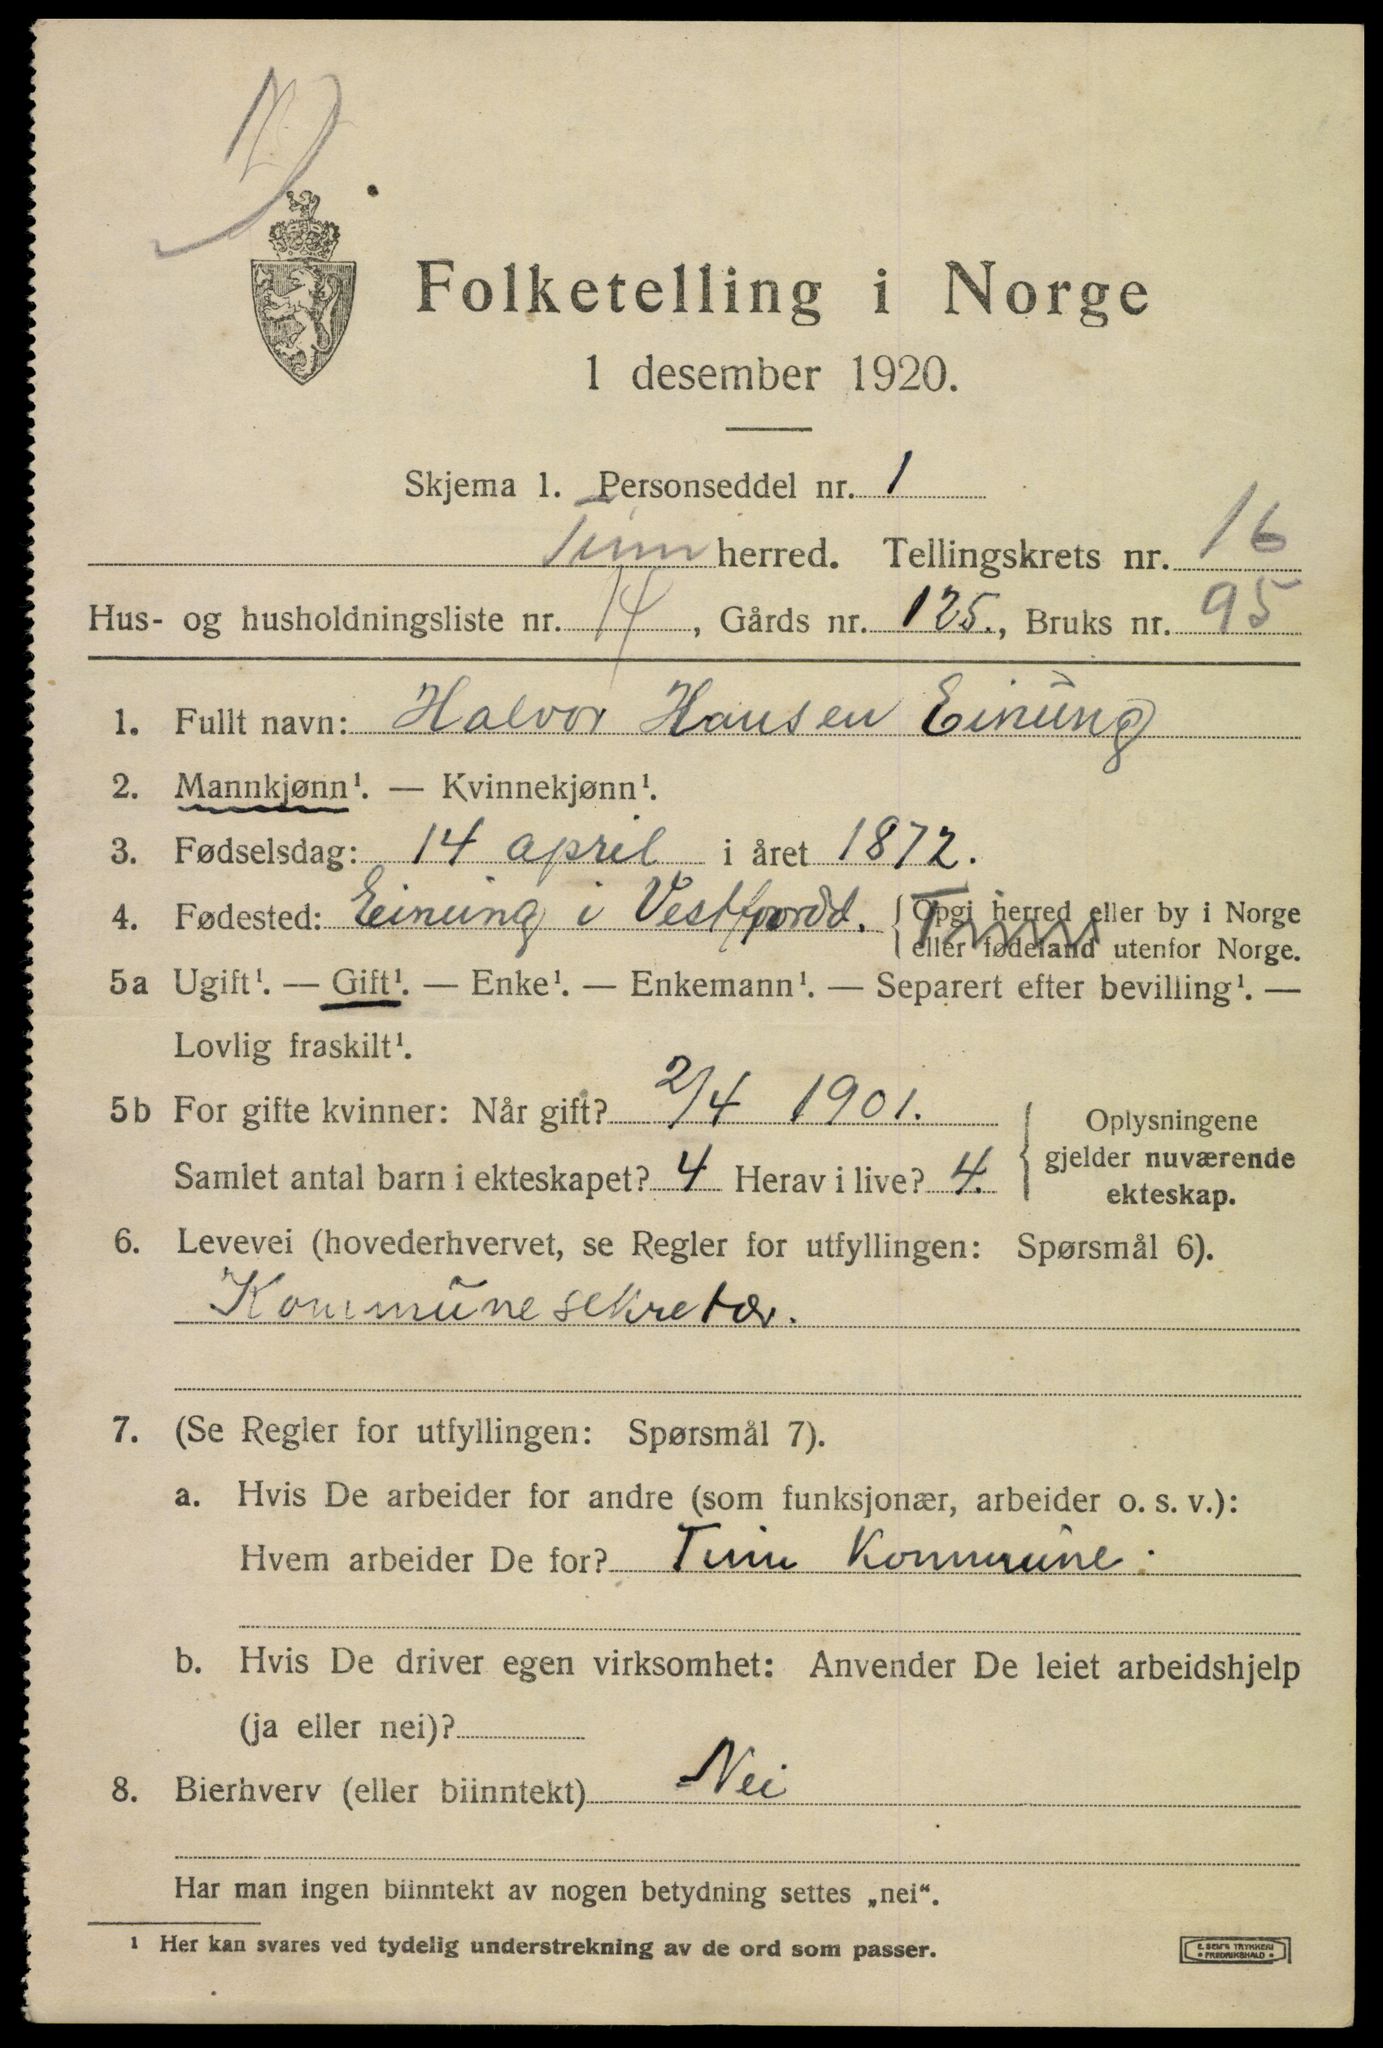 Folketelling i Norge
1 desember 1920.
Skjema 1. Personseddel nr. 1
Tinn herred. Tellingskrets nr. 16
Hus- og husholdningsliste nr. 14, Gårds nr. 125., Bruks nr. 95
1. Fullt navn: Halvor Hansen Einung
2. Mannkjønn¹. — Kvinnekjønn¹.
3. Fødselsdag: 14 april i året 1872.
4. Fødested: Einung i Vestfjordd. Tinn {Opgi herred eller by i Norge
eller fødeland utenfor Norge.
5a Ugift¹. — Gift¹. — Enke¹. — Enkemann¹. — Separert efter bevilling¹. —
Lovlig fraskilt¹.
5b For gifte kvinner: Når gift? 2/4 1901.
Samlet antal barn i ekteskapet? 4 Herav i live? 4.
{Oplysningene
gjelder nuværende
ekteskap.
6. Levevei (hovederhvervet, se Regler for utfyllingen: Spørsmål 6).
Kommunesekretær.
7. (Se Regler for utfyllingen: Spørsmål 7).
a. Hvis De arbeider for andre (som funksjonær, arbeider o. s. v.):
Hvem arbeider De for? Tinn Kommune.
b. Hvis De driver egen virksomhet: Anvender De leiet arbeidshjelp
(ja eller nei)?
8. Bierhverv (eller biinntekt) Nei
Har man ingen biinntekt av nogen betydning settes „nei“.
¹ Her kan svares ved tydelig understrekning av de ord som passer.
E. SEM'S TRYKKERI
• FREDRIKSHALD •